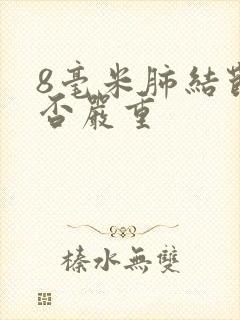 8毫米肺結節
否嚴重
榛水無雙